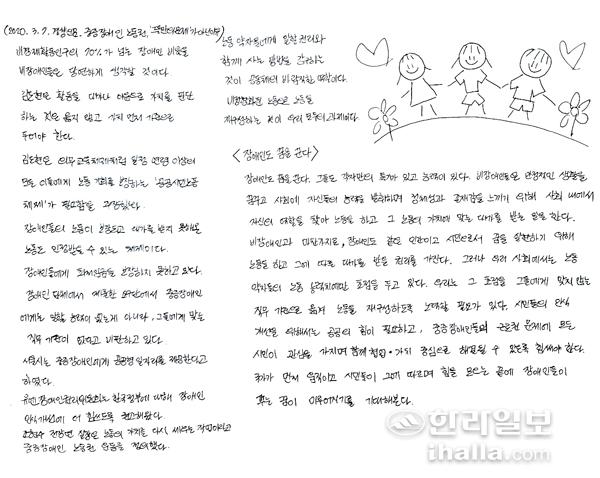 (2020. 3. 7. 경향신문. 중증장애인 노동권,
비경제활동인구의 70%가 넘는 장애인 비율을
비장애인들은 당연하게 생각할 것이다.
활동을 이윤으로 가치를 판단
하는 것은 옳지 않고 가치 기준으로
두어야 한다.
의무교육체제처럼 일정 연령 이상의
모든 이들에게 노동 기회를 보장하는 '공공시민노동
체제'가 필요함을
장애인들의 노동이 대가를 받지 못해온
노동도 인정받을 수 있는 체제이다.
장애인들에게 최저임금을 보장하지 못하고 있다.
장애인 단체에서 중증장애인
에게는 일할 능력이 없는게 아니라, 그들에게 맞는
직무 기준이 없다고 비판하고 있다.
서울시는 중증장애인에게 공공형 일자리를 제공한다고
하였다.
유엔장애인권리위원회는 한국정부에 대해 장애인
인식개선에 더 힘쓰도록 권고해왔다.
노동의 가치를 다시 세우는 작업이라고
중증장애인 노동권
노동 약자들에게 일할 권리와
함께 사는 방법을
것이 공동체의
노동으로 노동을
재구성하는 것이 우리 모두의 과제이다.
<장애인도 꿈을 꾼다>
장애인도 꿈을 꾼다. 그들도 각자만의 특기가 있고 능력이 있다. 비장애인들은 안정적인 생활을
꿈꾸고 사회에 자신들의 능력을 발휘하며 정체성과 존재감을 느끼기 위해 사회 내에서
자신의 역할을 찾아 노동을 하고 그 노동의 가치에 맞는 대가를 받는 일을 한다.
비장애인과 마찬가지로, 장애인도 같은 인간이고 시민으로서 꿈을 실현하기 위해
노동을 하고 그에 따른 대가를 받을 권리를 가진다. 그러나 우리 사회에서는 노동
약자들의 노동 능력에만 초점을 두고 있다. 우리는 그 초점을 그들에게 맞지 않는
직무 기준으로 옮겨 노동을 재구성하도록 노력할 필요가 있다. 시민들의 인식
개선을 위해서는 공공의 힘이 필요하고, 중증장애인들의 근로권 문제에 모든
시민이 관심을 가지며 함께 협업·가치 중심으로 해결될 수 있도록 힘써야 한다.
국가가 먼저 움직이고 시민들이 그에 따르며 힘을 모으는 끝에 장애인들이
꾸는 꿈이 이루어지기를 기대해본다.
한라일보
ihalla.com